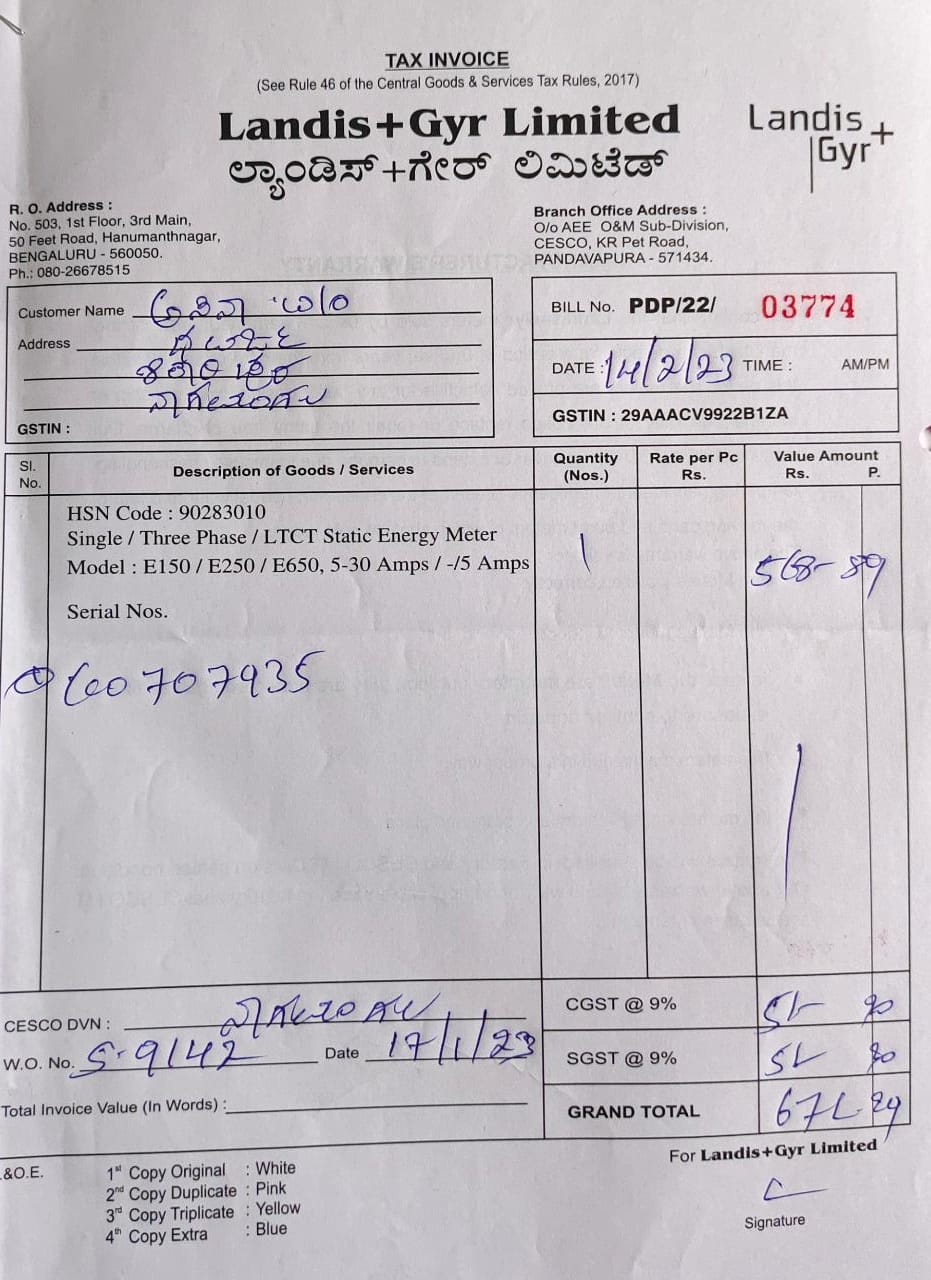 TAX INVOICE
(See Rule 46 of the Central Goods & Services Tax Rules, 2017)
Landis+Gyr Limited
ಲ್ಯಾಂಡಿಸ್+ಗೇರ್ ಲಿಮಿಟೆಡ್
Landis
Gyr+
R. O. Address :
No. 503, 1st Floor, 3rd Main,
50 Feet Road, Hanumanthnagar,
BENGALURU - 560050.
Ph.: 080-26678515
Branch Office Address :
O/o AEE O&M Sub-Division,
CESCO, KR Pet Road,
PANDAVAPURA - 571434.
Customer Name
Address
GSTIN :
BILL No. PDP/22/ 03774
DATE : 14/2/23 TIME : AM/PM
GSTIN : 29AAACV9922B1ZA
Sl. No. Description of Goods / Services Quantity (Nos.) Rate per Pc Rs. Value Amount Rs. P.
HSN Code : 90283010
Single / Three Phase / LTCT Static Energy Meter
Model : E150 / E250 / E650, 5-30 Amps / -/5 Amps 1 568-89
Serial Nos.
707935
CESCO DVN :
CGST @ 9%
W.O. No. S-9142 Date 17/1/23
SGST @ 9%
Total Invoice Value (In Words) :
GRAND TOTAL
For Landis+Gyr Limited
.&O.E.
1st Copy Original : White
2nd Copy Duplicate : Pink
3rd Copy Triplicate : Yellow
4th Copy Extra : Blue
Signature